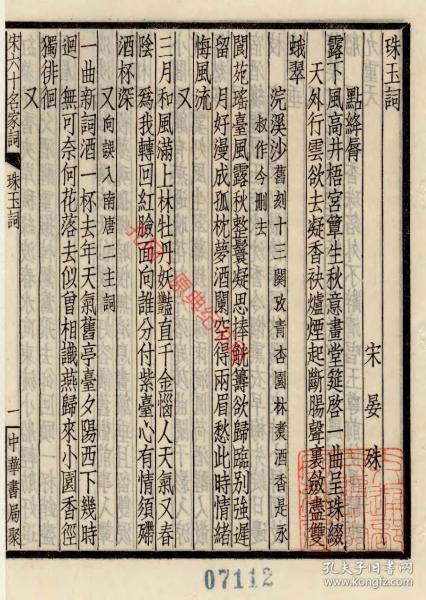 珠玉詞
宋 晏 殊
點絳脣
露下風高井梧宮簟生秋意畫堂筵啓一曲呈珠綴
天外行雲欲去凝香袂爐煙起斷腸聲裏斂盡雙
蛾翠
浣溪沙舊刻十三闋攷青杏園林煑酒香是永
叔作今刪去
閬苑瑤臺風露秋整鬟凝思捧觥籌欲歸臨別強遲
留 月好漫成孤枕夢酒闌空得兩眉愁此時情緒
悔風流
又
三月和風滿上林牡丹妖豔直千金惱人天氣又春
陰 爲我轉回紅臉面向誰分付紫臺心有情須殢
酒杯深
又向誤入南唐二主詞
一曲新詞酒一杯去年天氣舊亭臺夕陽西下幾時
迴 無可奈何花落去似曾相識燕歸來小園香徑
獨徘徊
又
宋六十名家詞
珠玉詞
一
中華書局聚
07112
孔夫子旧书网
www.kongfz.com